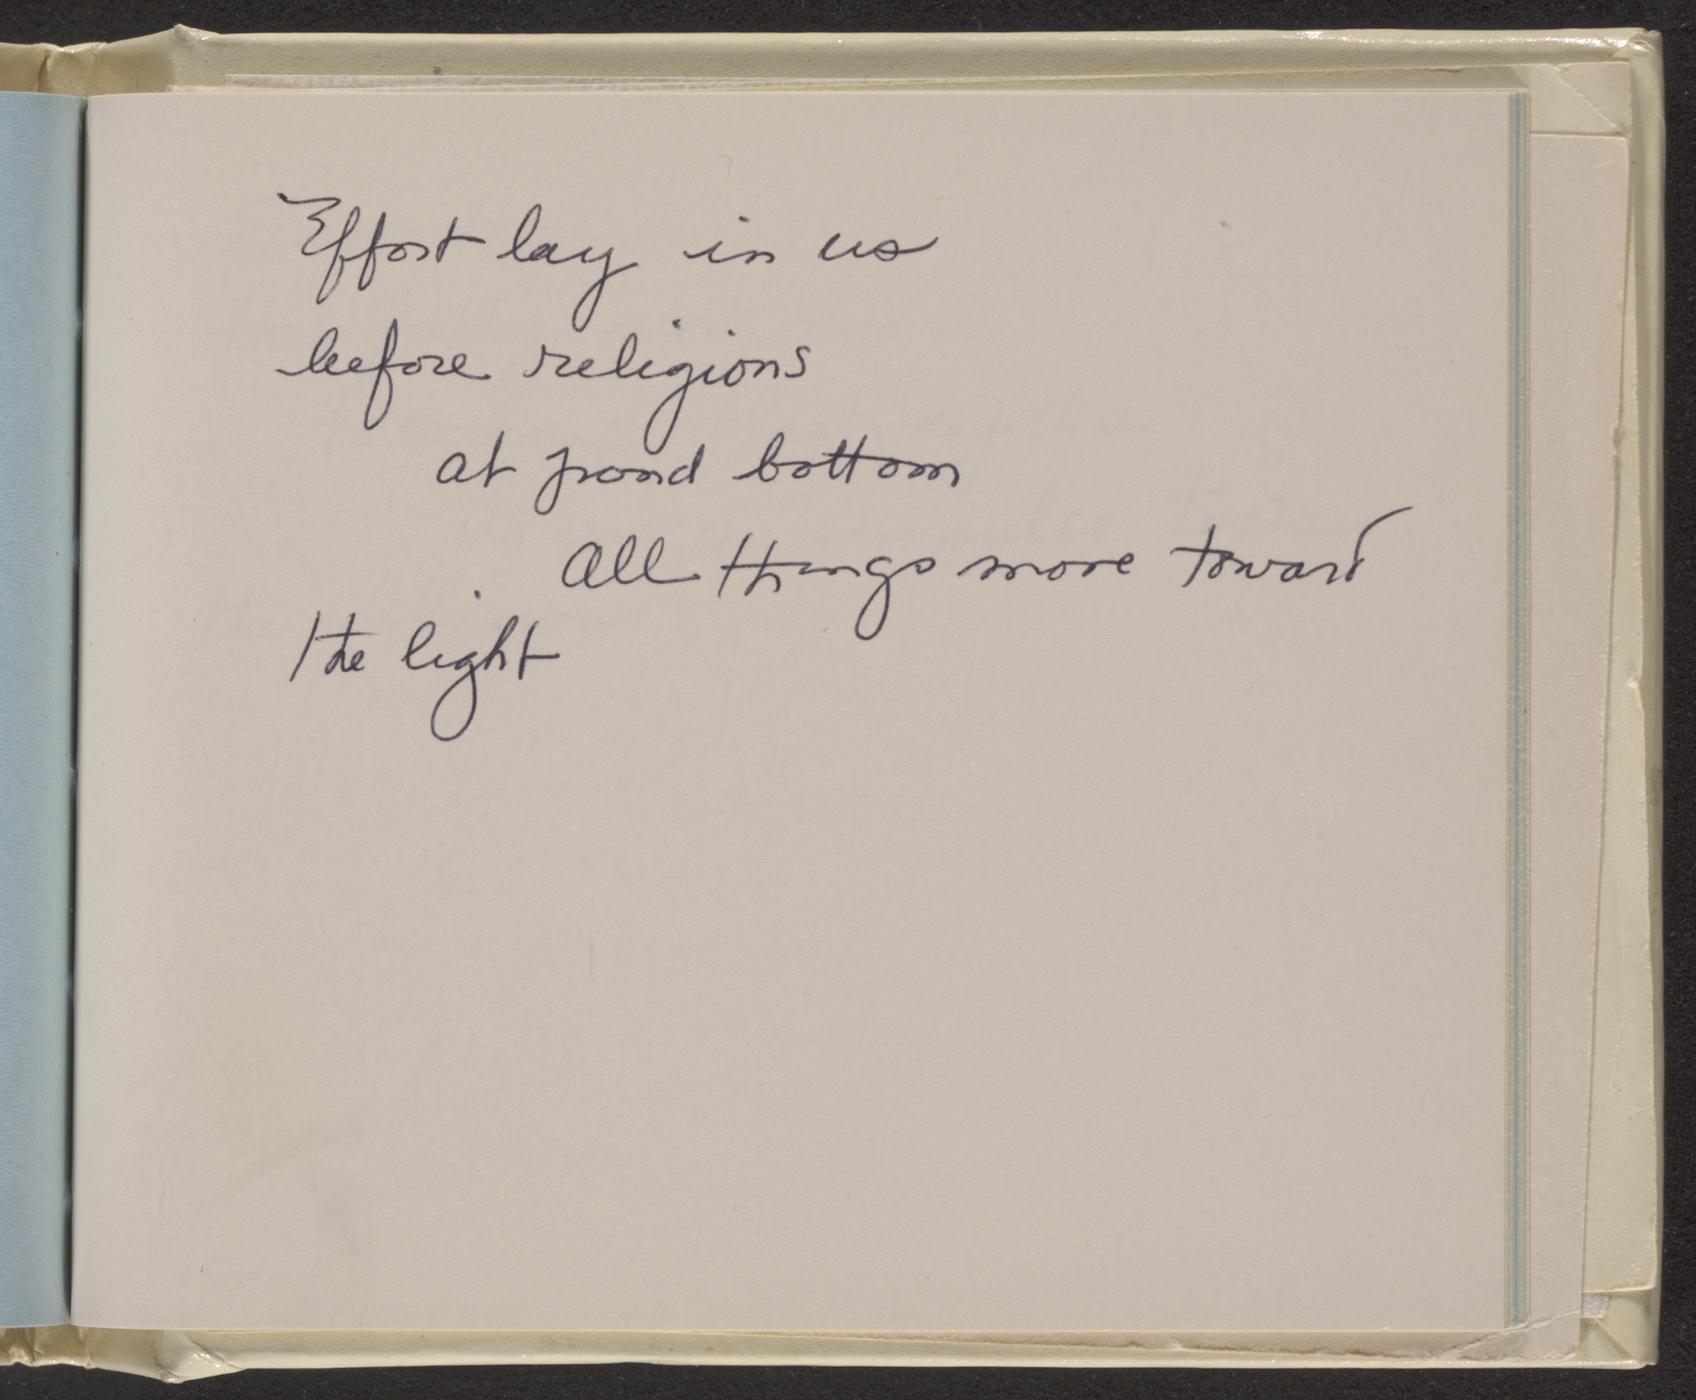 Effort lay in us
before religions
at pond bottom
All things move toward
the light